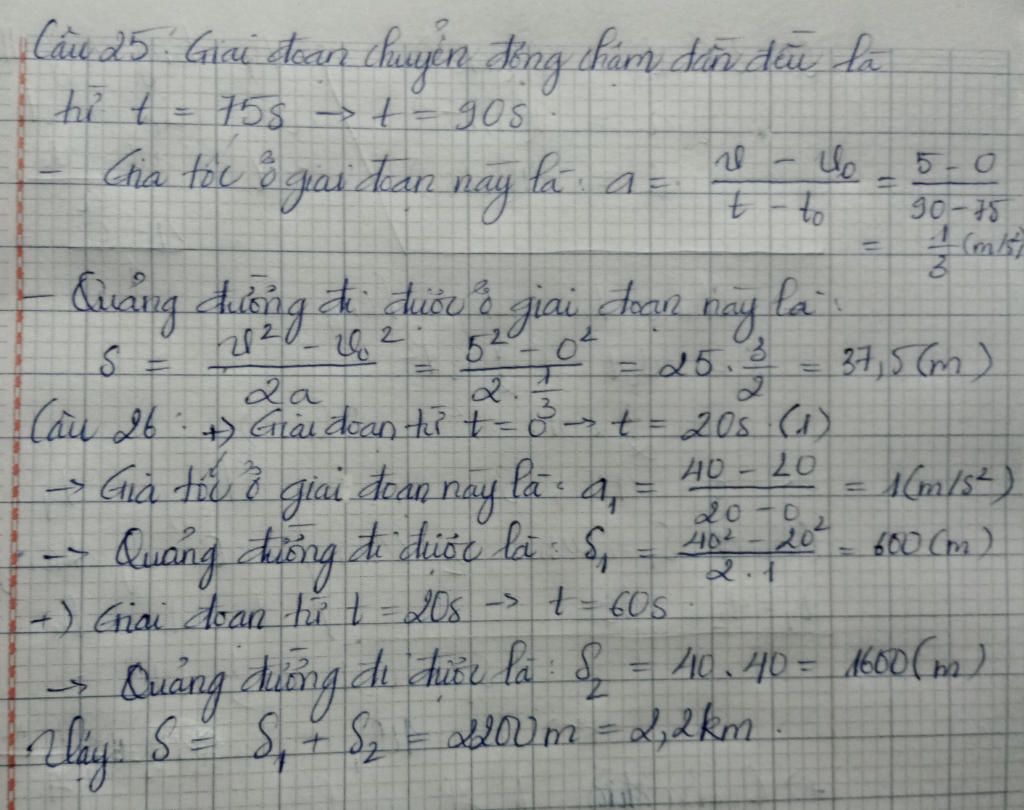 Câu 25: Giai đoạn chuyển động chậm dần đều là
từ t = 75s → t = 90s.
- Gia tốc ở giai đoạn này là: a = (v - v₀)/(t - t₀) = (5 - 0)/(90 - 75)
= 1/3 (m/s²)
- Quảng đường đi được ở giai đoạn này là:
S = (v² - v₀²)/(2a) = (5² - 0²)/(2 . 1/3) = 25 . 3/2 = 37,5 (m)
Câu 26: +) Giai đoạn từ t = 0 → t = 20s (1)
→ Gia tốc ở giai đoạn này là: a₁ = (40 - 20)/(20 - 0) = 1 (m/s²)
→ Quảng đường đi được là: S₁ = (40² - 20²)/(2 . 1) = 600 (m)
+) Giai đoạn từ t = 20s → t = 60s.
→ Quảng đường đi được là: S₂ = 40 . 40 = 1600 (m)
Vậy: S = S₁ + S₂ = 2200m = 2,2km.